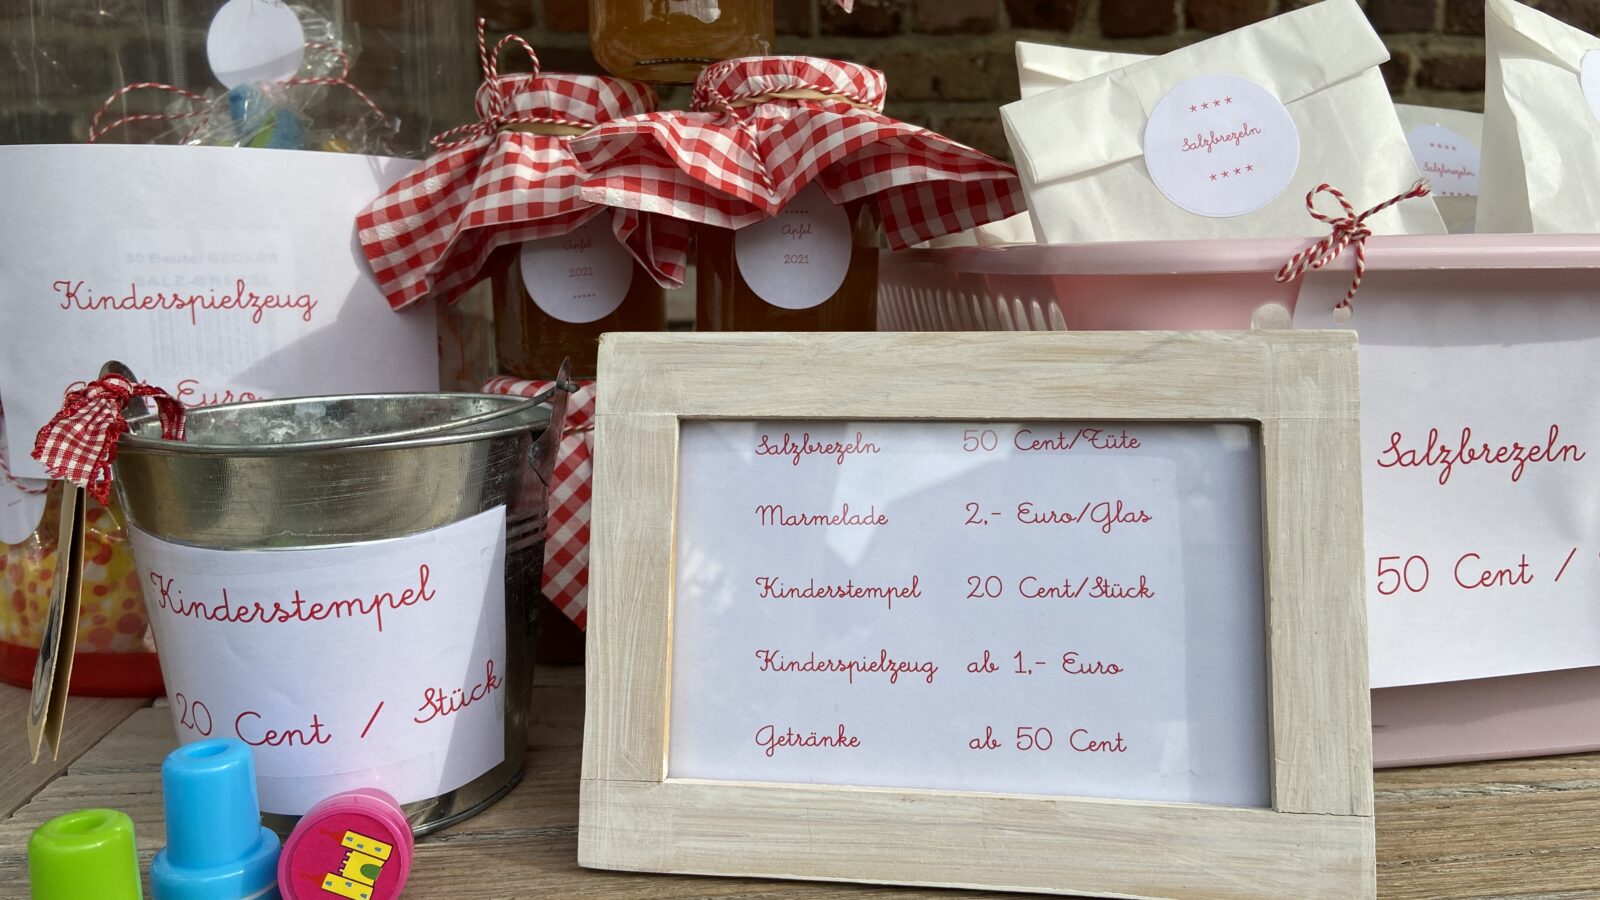 ****
Salzbrezeln
****
****
Salzbrezeln
****
Apfel
2021
*****
*****
Apfel
2021
30 Beutel BECKER
SALZ-BREZEL
Kinderspielzeug
Euro
Kinderstempel
20 Cent / Stück
Salzbrezeln 50 Cent/Tüte
Marmelade 2,- Euro/Glas
Kinderstempel 20 Cent/Stück
Kinderspielzeug ab 1,- Euro
Getränke ab 50 Cent
Salzbrezeln
50 Cent /